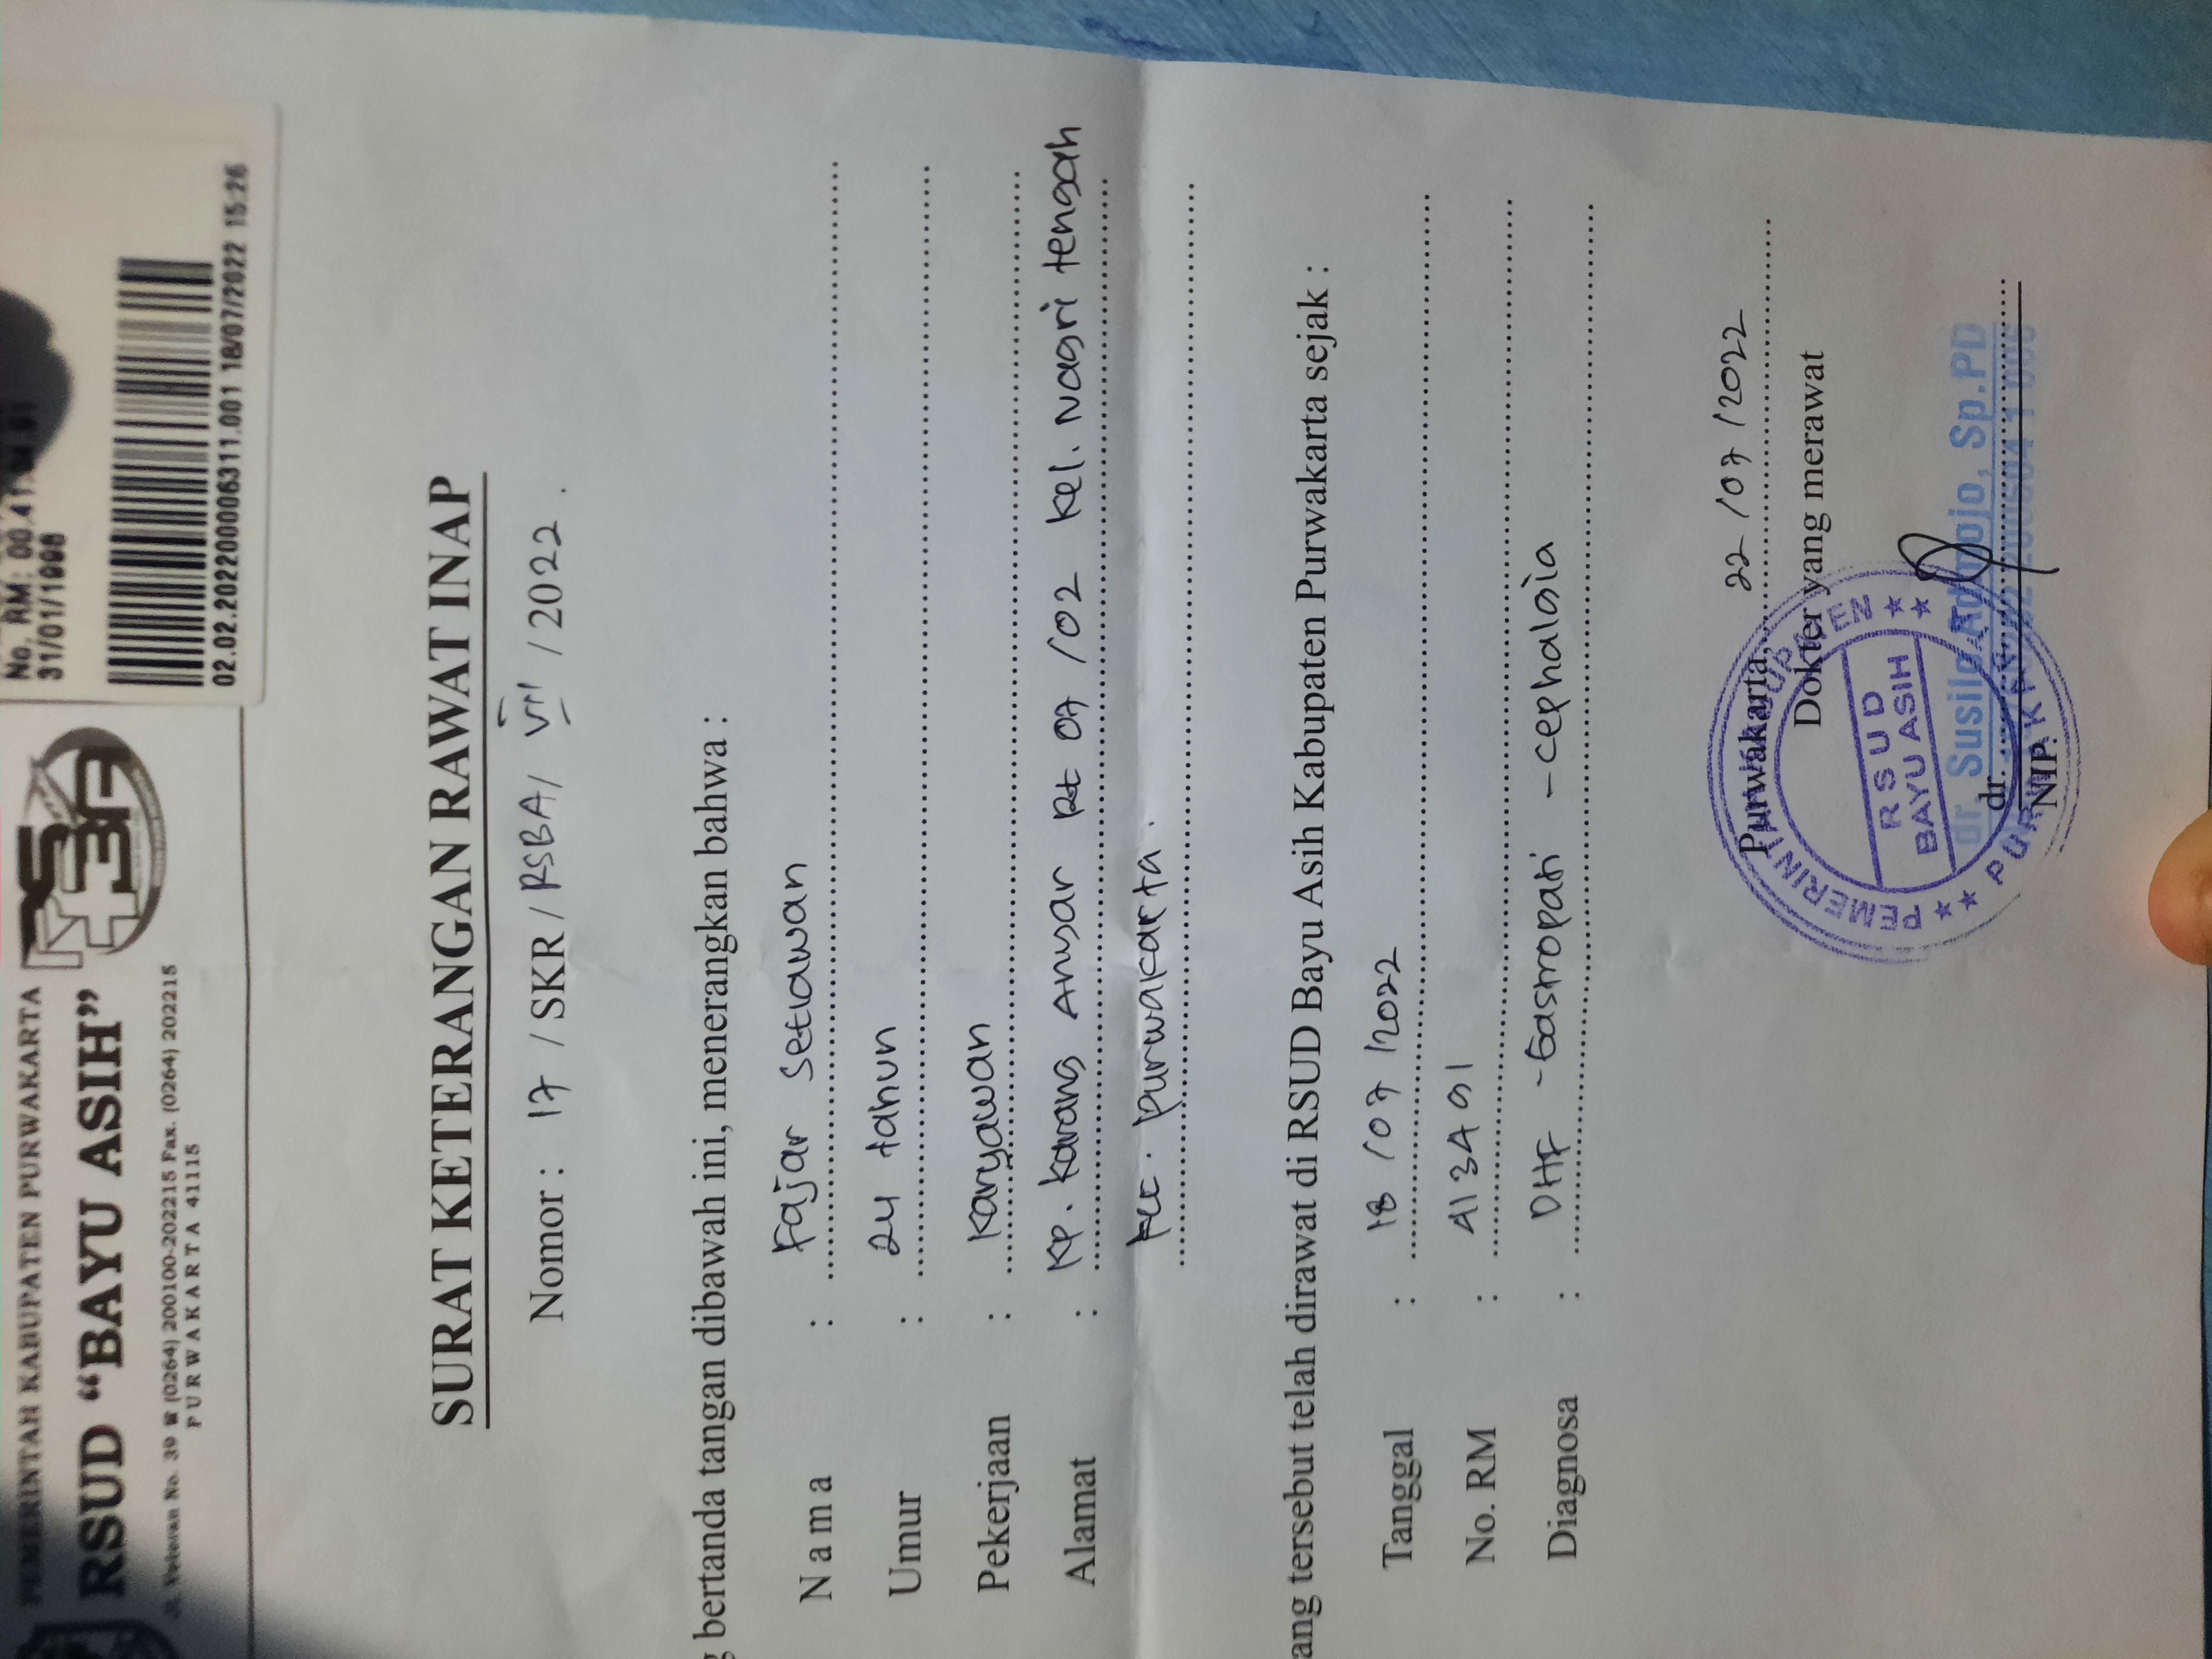 PEMERINTAH KABUPATEN PURWAKARTA
RSUD “BAYU ASIH”
Jl. Veteran No. 39 ☎ (0264) 200100-202215 Fax. (0264) 202215
PURWAKARTA 41115
No. RM: 00.41.34.91
31/01/1998
02.02.202200006311.001 18/07/2022 15:26
SURAT KETERANGAN RAWAT INAP
Nomor : 17 / SKR / RSBA / VII / 2022 .
bertanda tangan dibawah ini, menerangkan bahwa :
Nama : Fajar Setiawan
Umur : 24 tahun
Pekerjaan : Karyawan
Alamat : Kp. Karang Anyar Rt 07 /02 Kel. Nagri tengah
Kec. purwakarta.
ang tersebut telah dirawat di RSUD Bayu Asih Kabupaten Purwakarta sejak :
Tanggal : 18 /07 /2022
No. RM : 413491
Diagnosa : DHF - Gastropati - cephalgia
Purwakarta, 22 /07 /2022
Dokter yang merawat
PEMERINTAH KABUPATEN
RSUD
BAYU ASIH
PURWAKARTA
dr. Susilo Admojo, Sp.PD
dr.
NIP.